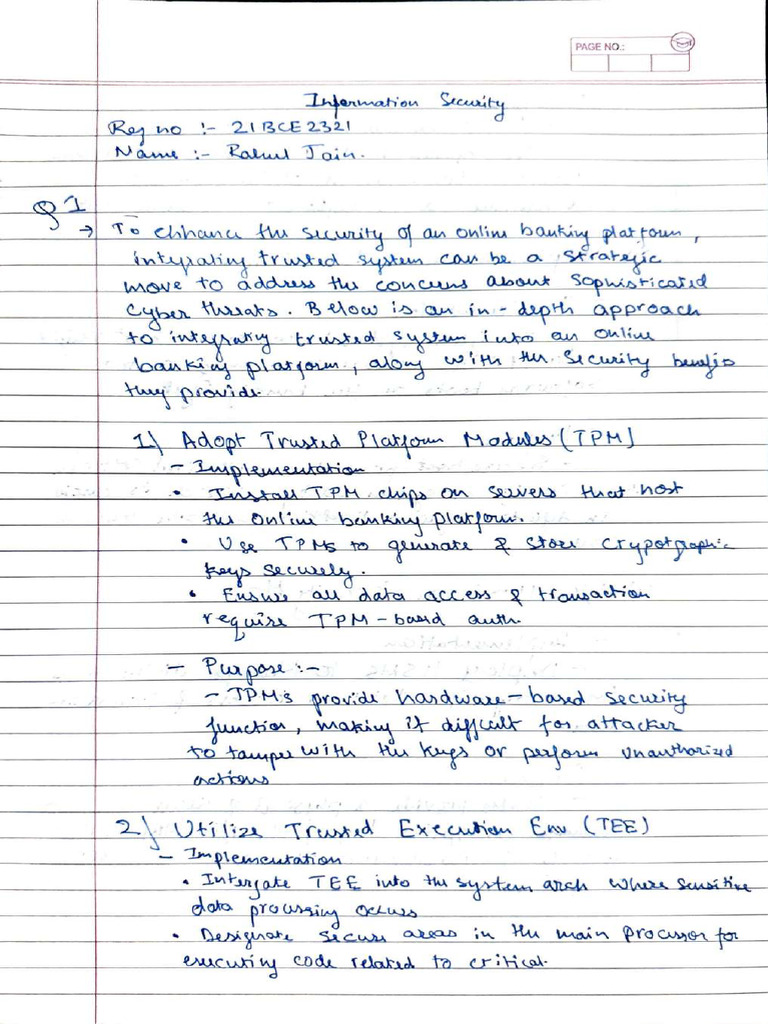 PAGE NO.:
Information Security
Reg no :- 21BCE2321
Name :- Rahul Jain.
Q1
→ To enhance the security of an online banking platform,
integrating trusted system can be a strategic
move to address the concerns about sophisticated
cyber threats. Below is an in-depth approach
to integrating trusted system into an online
banking platform, along with the security benefits
they provide.
1) Adopt Trusted Platform Modules (TPM)
- Implementation
• Install TPM chips on servers that host
the online banking platform.
• Use TPMs to generate & store cryptographic
keys securely.
• Ensure all data access & transaction
require TPM-based auth.
- Purpose :-
- TPMs provide hardware-based security
function, making it difficult for attacker
to tamper with the keys or perform unauthorized
actions
2) Utilize Trusted Execution Env (TEE)
- Implementation
• Intergate TEE into the system arch where sensitive
data processing occurs
• Designate secure areas in the main processor for
executing code related to critical.